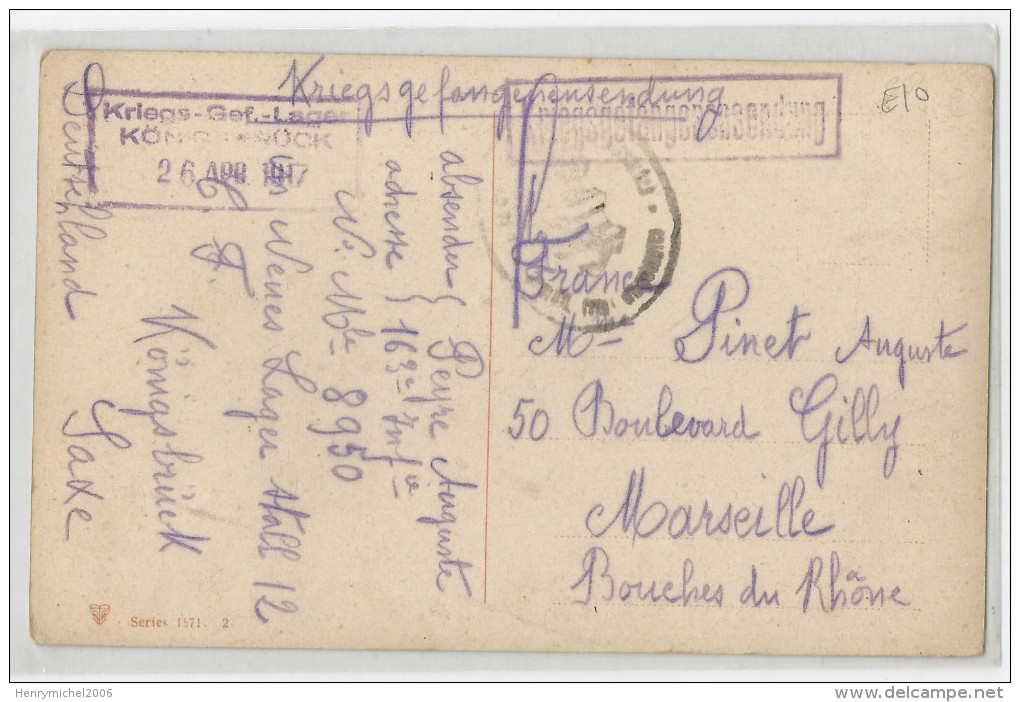 Kriegsgefangenensendung
Kriegsgefangenensendung
E10
Kriegs-Gef.-Lager
KÖNIGSBRÜCK
26 APR. 1917
absender { Peyre Auguste
adresse { 163e Infie
No Mle 8950
Neues Lager Stall 12
Königsbrück
Deutschland Saxe
France
Mr Pinet Auguste
50 Boulevard Gilly
Marseille
Bouches du Rhône
Series 1571. 2
Henrymichel2006
delcampe.net